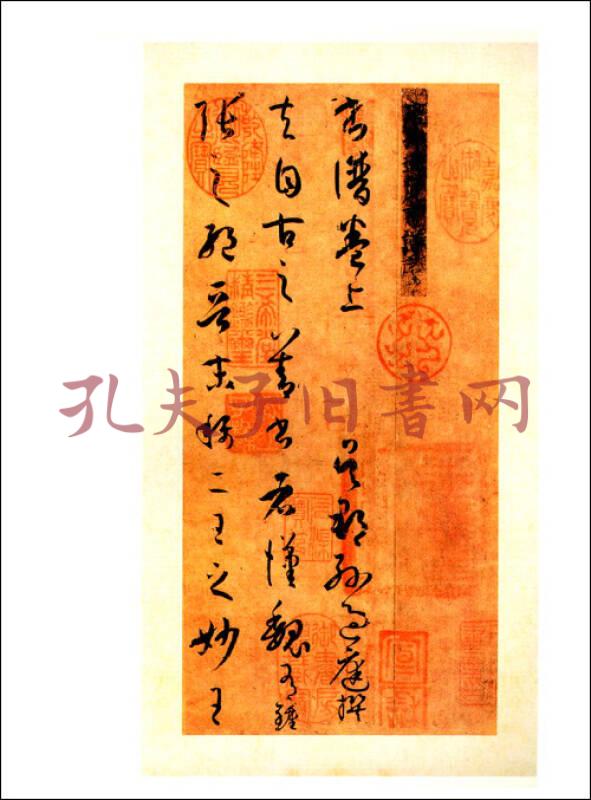 書譜卷上 吳郡孫過庭撰
夫自古之善書者漢魏有鍾
張之絕晉末稱二王之妙王
孔夫子旧书网